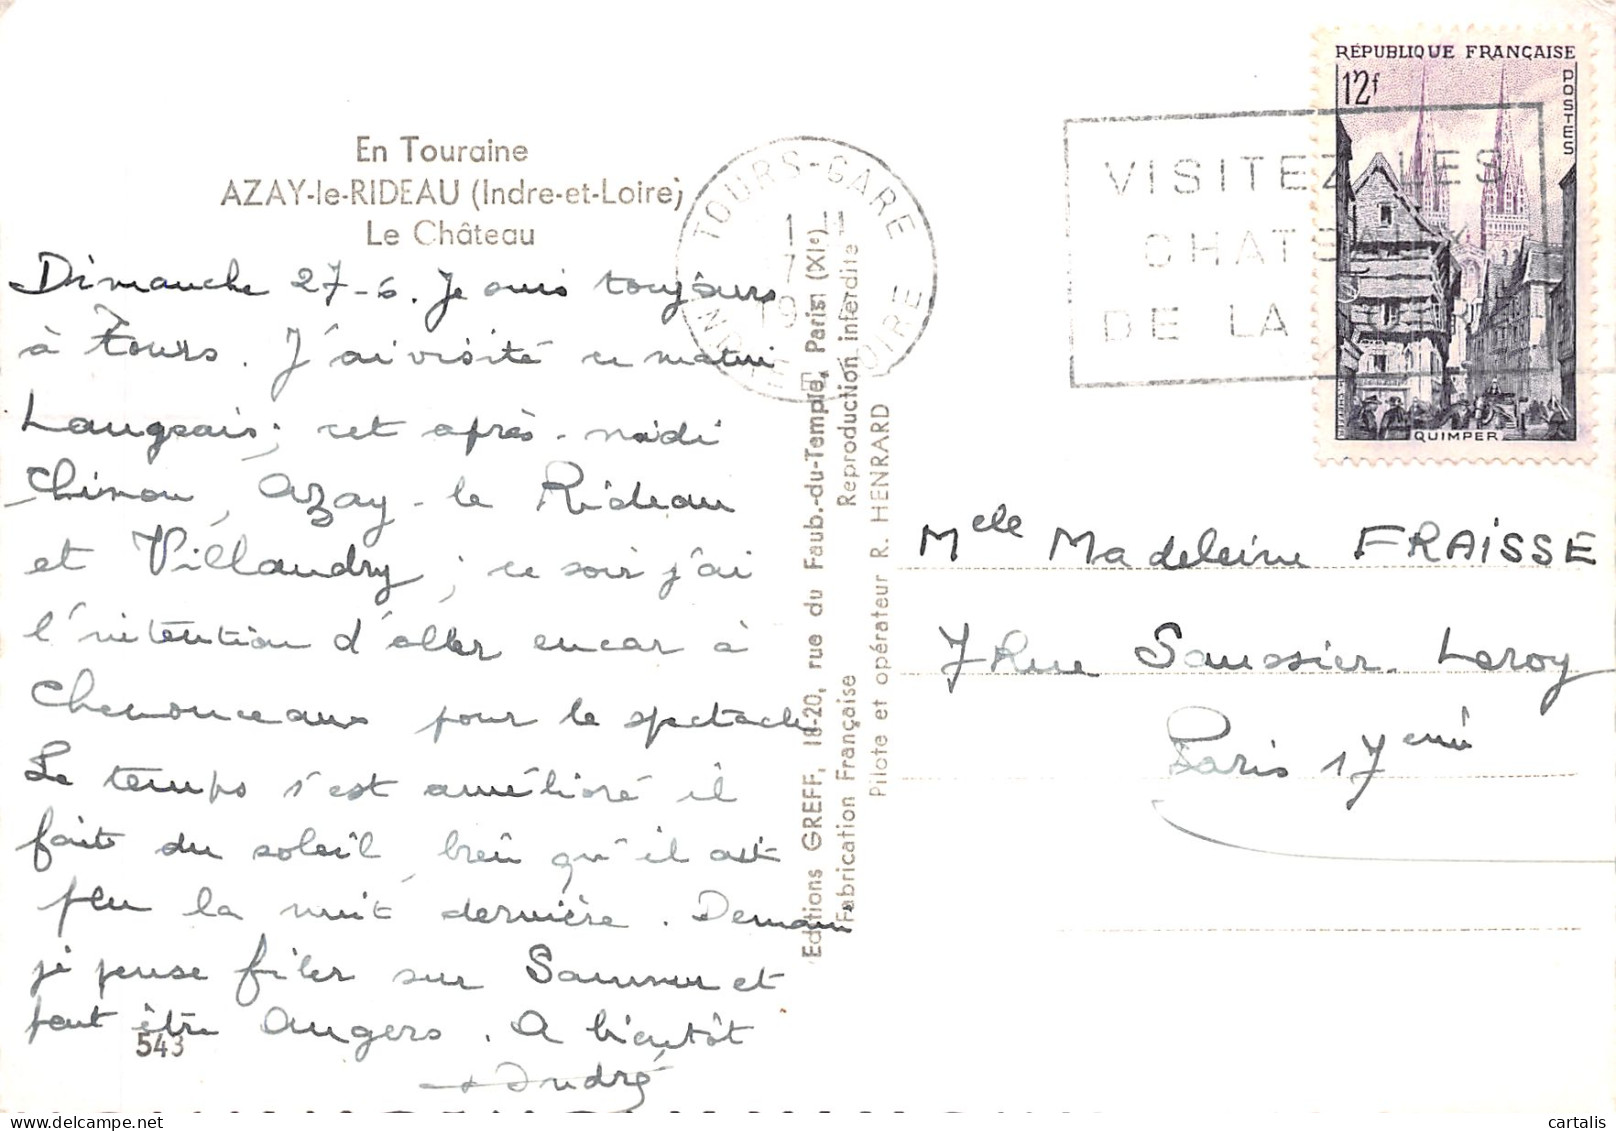 En Touraine
AZAY-le-RIDEAU (Indre-et-Loire)
Le Château
Dimanche 27-6. Je suis toujours
à Tours. J'ai visité ce matin
Langeais; cet après-midi
Chinon, Azay-le Rideau
et Villandry; ce soir j'ai
l'intention d'aller encor à
Chenonceaux pour le spectacle
Le temps s'est amélioré il
fait du soleil, bien qu'il ait
plu la nuit dernière. Demain
je pense filer sur Saumur et
peut être Angers. A bientôt
André
543
Editions GREFF, 18-20, rue du Faub.-du-Temple, Paris (XIe)
Fabrication Française Reproduction interdite
Pilote et opérateur R. HENRARD
TOURS-GARE
INDRE ET LOIRE
VISITEZ LES
CHATEAUX
DE LA
RÉPUBLIQUE FRANÇAISE
12f
POSTES
QUIMPER
Melle Madeleine FRAISSE
7 Rue Saussier-Leroy
Paris 17eme
cartalis
https://www.delcampe.net